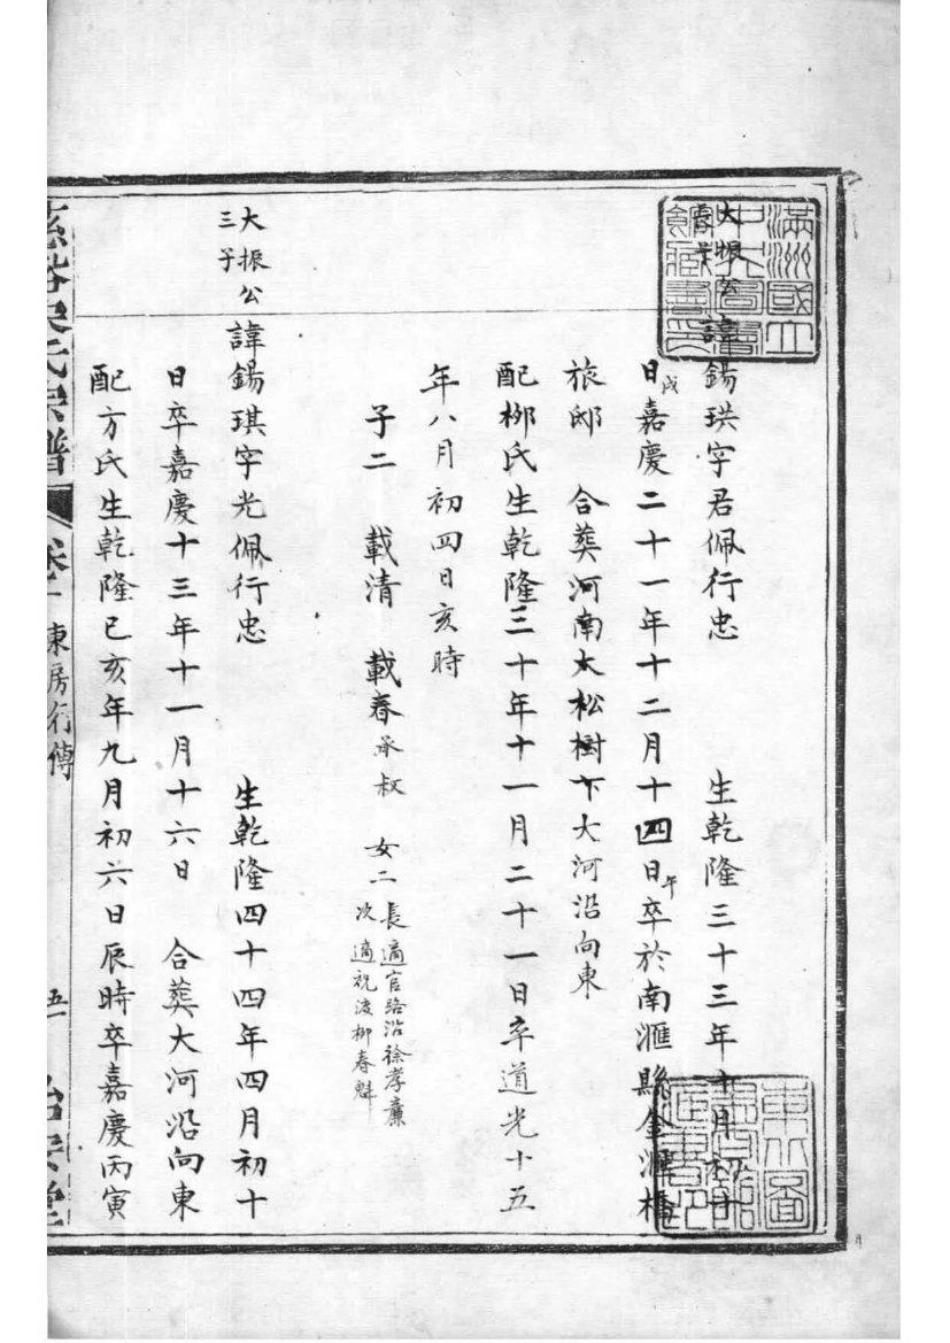 大振公
諱錫珙字君佩行忠 生乾隆三十三年十月初十
日戌嘉慶二十一年十二月十四日午卒於南滙縣金滙橋
旅邸 合葬河南大松樹下大河沿向東
配柳氏生乾隆三十年十一月二十一日卒道光十五
年八月初四日亥時
子二 載清 載春承叔 女二 長適官路沿徐孝廉
次適祝渡柳春魁
大振公
三子
諱錫琪字光佩行忠 生乾隆四十四年四月初十
日卒嘉慶十三年十一月十六日 合葬大河沿向東
配方氏生乾隆己亥年九月初六日辰時卒嘉慶丙寅
氏宗譜 卷 東房行傳 五